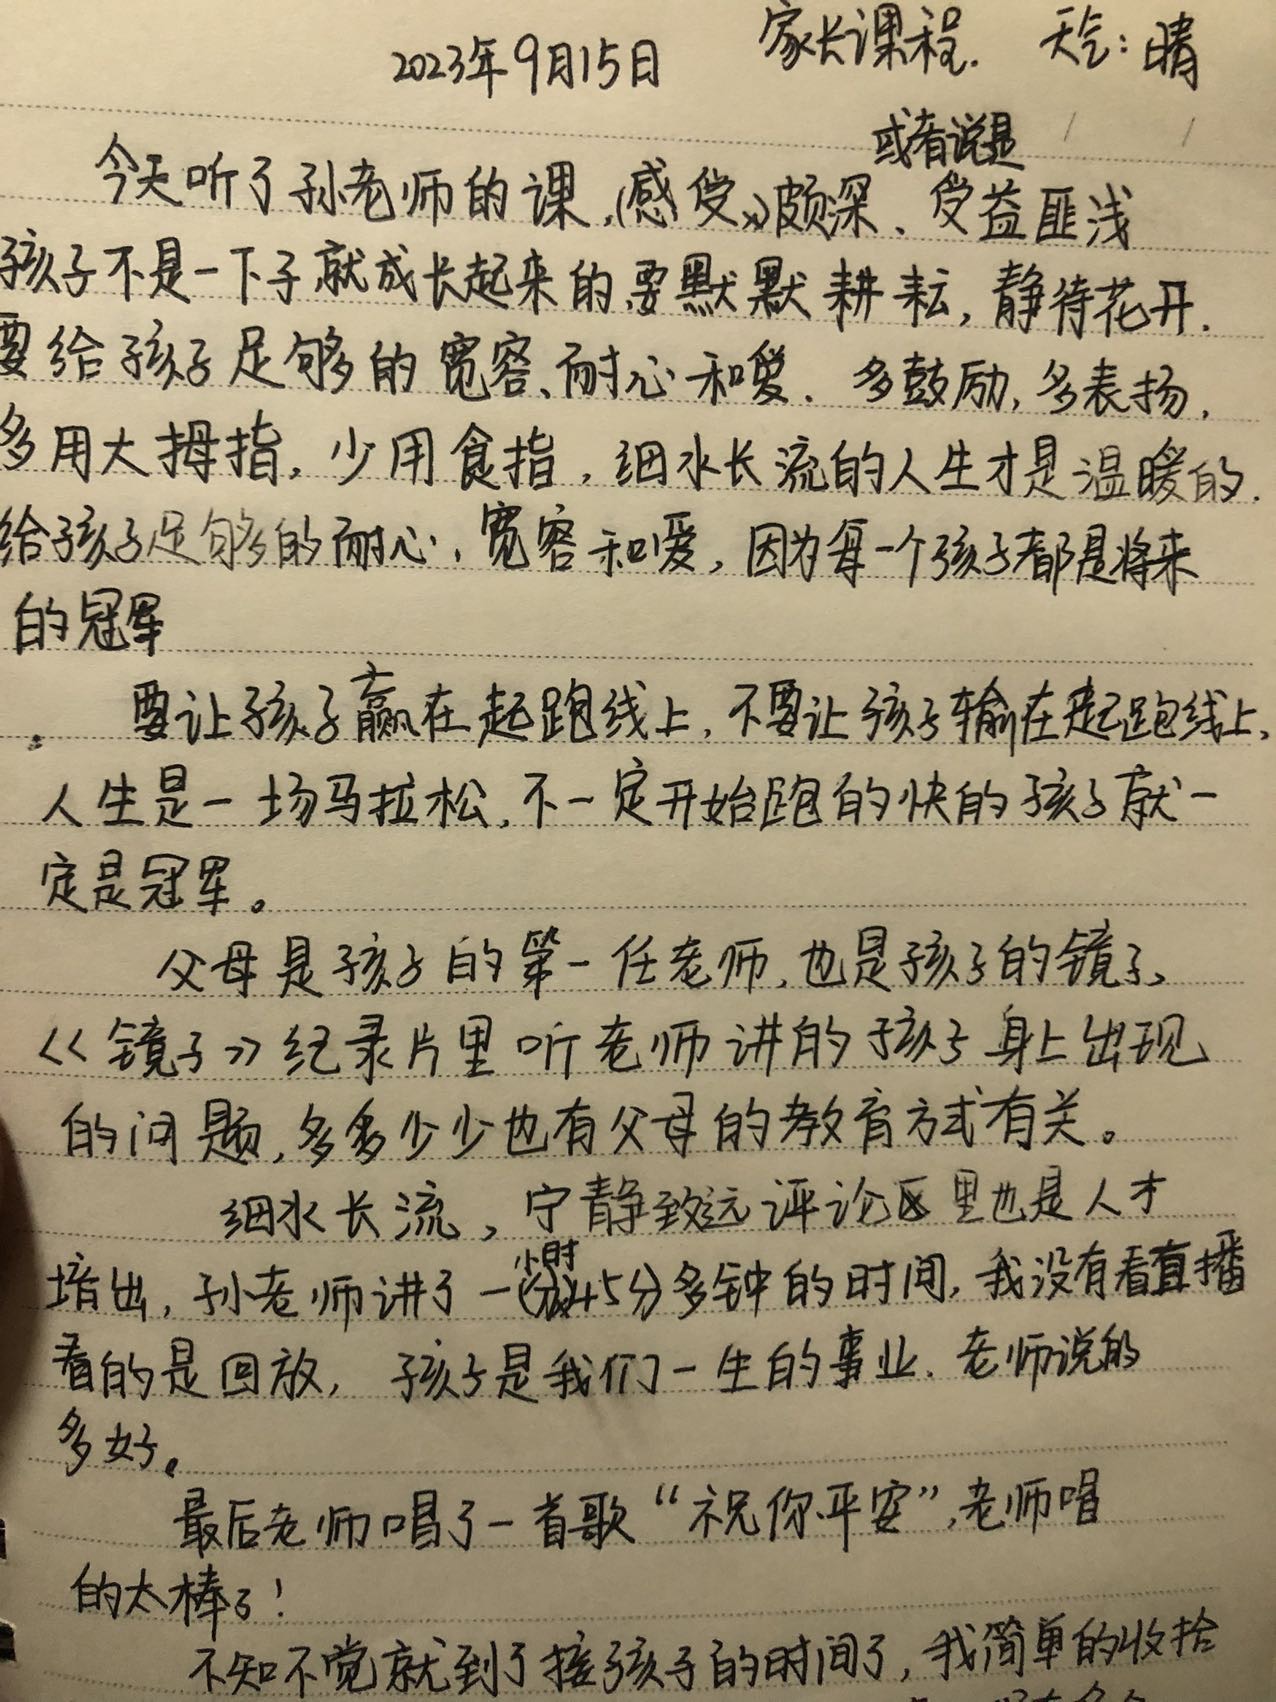 2023年9月15日 家长课程. 天气:晴
或者说是
今天听了孙老师的课,(感受)颇深、受益匪浅
孩子不是一下子就成长起来的,要默默耕耘,静待花开.
要给孩子足够的宽容、耐心和爱.多鼓励,多表扬,
多用大拇指.少用食指,细水长流的人生才是温暖的.
给孩子足够的耐心,宽容和爱,因为每一个孩子都是将来
的冠军
要让孩子赢在起跑线上,不要让孩子输在起跑线上,
人生是一场马拉松,不一定开始跑的快的孩子就一
定是冠军。
父母是孩子的第一任老师,也是孩子的镜子,
《镜子》纪录片里听老师讲的孩子身上出现
的问题,多多少少也有父母的教育方式有关。
细水长流,宁静致远评论区里也是人才
培出,孙老师讲了一小时45分多钟的时间,我没有看直播
看的是回放,孩子是我们一生的事业.老师说的
多好。
最后老师唱了一首歌“祝你平安”,老师唱
的太棒了!
不知不觉就到了接孩子的时间了,我简单的收拾